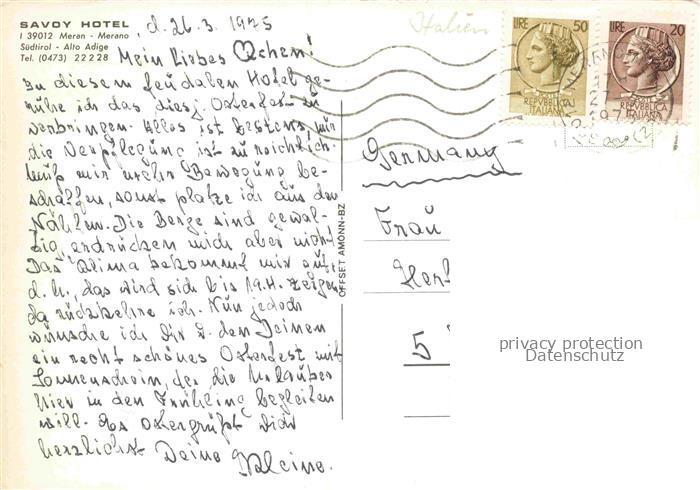 SAVOY HOTEL
I 39012 Meran - Merano
Südtirol - Alto Adige
Tel. (0473) 22228
d. 26.3.1975
Mein liebes
In diesem feudalen Hotel ge-
ruhe ich das diesj. Osterfest zu
verbringen. Alles ist bestens, nur
die Verpflegung ist zu reichlich.
Muß mir mehr Bewegung be-
schaffen, sonst platze ich aus den
Nähten. Die Berge sind gewal-
tig, erdrücken mich aber nicht.
Das Klima bekommt mir gut,
d.h., das wird sich bis 19.4. zeigen,
da rückkehre ich. Nun jedoch
wünsche ich Dir u. den Deinen
ein recht schönes Osterfest mit
Sonnenschein, der die Urlauber
hier in den Frühling begleiten
will. Es ostergrüßt Dich
herzlichst Deine
OFFSET AMONN-BZ
Italien
LIRE 50
REPVBBLICA
ITALIANA
LIRE 20
REPVBBLICA
ITALIANA
Germany
Frau
5
privacy protection
Datenschutz